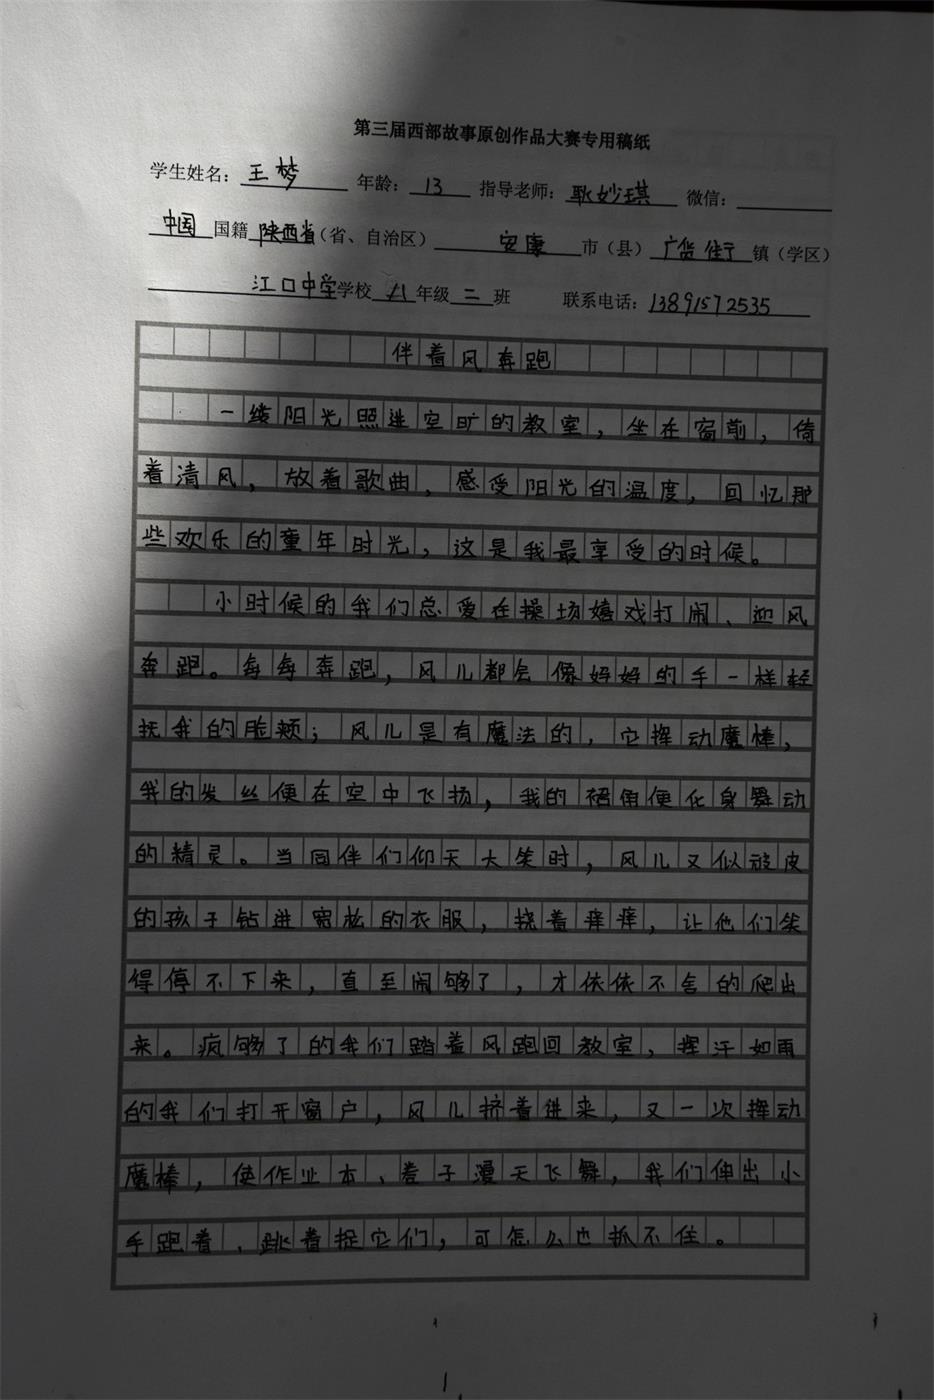 第三届西部故事原创作品大赛专用稿纸
学生姓名：王梦 年龄：13 指导老师：耿妙琪 微信：
中国国籍 陕西省（省、自治区） 安康 市（县） 广货街 镇（学区）
江口中学学校 八年级二班 联系电话：13891572535
伴着风奔跑
一缕阳光照进空旷的教室，坐在窗前，倚
着清风，放着歌曲，感受阳光的温度，回忆那
些欢乐的童年时光，这是我最享受的时候。
小时候的我们总爱在操场嬉戏打闹、迎风
奔跑。每每奔跑，风儿都会像妈妈的手一样轻
抚我的脸颊；风儿是有魔法的，它挥动魔棒，
我的发丝便在空中飞扬，我的裙角便化身舞动
的精灵。当同伴们仰天大笑时，风儿又似顽皮
的孩子钻进宽松的衣服，挠着痒痒，让他们笑
得停不下来，直至闹够了，才依依不舍的爬出
来。疯够了的我们踏着风跑回教室，挥汗如雨
的我们打开窗户，风儿挤着进来，又一次挥动
魔棒，使作业本、卷子漫天飞舞，我们伸出小
手跑着、跳着捉它们，可怎么也抓不住。
1